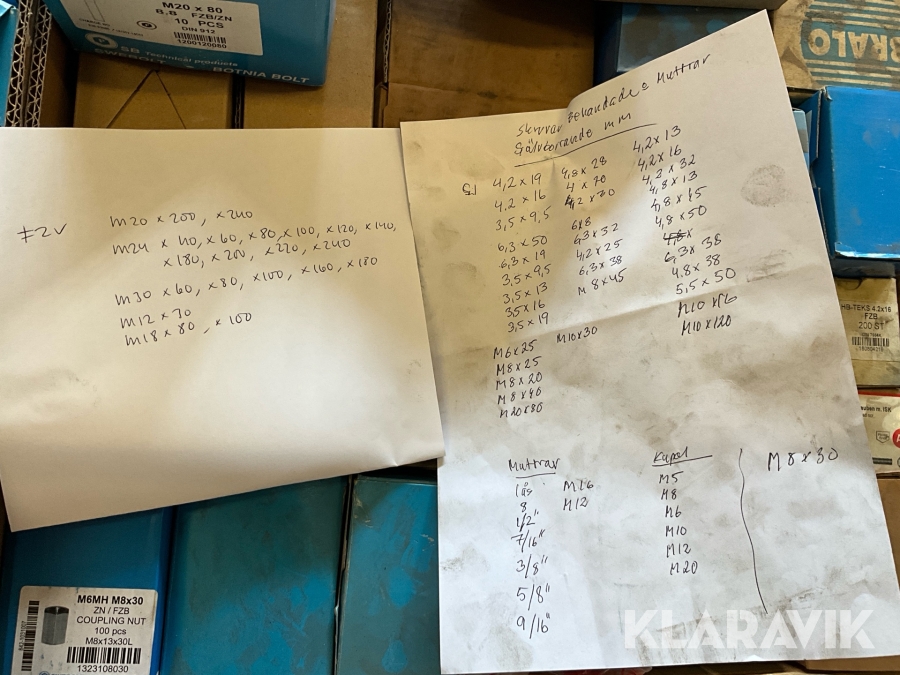 M20 x 80
8.8 FZB/ZN
10 PCS
DIN 912
1200120080
SB Technical products
BOTNIA BOLT
BRALO
FZV
M20 x 200, x 240
M24 x 40, x 60, x 80, x 100, x 120, x 140,
x 180, x 200, x 220, x 240
M30 x 60, x 80, x 100, x 160, x 180
M12 x 70
M18 x 80, x 100
Skruvar Behandade & Muttrar
Självborrande mm
4,2 x 19
4,2 x 16
3,5 x 9,5
6,3 x 50
6,3 x 19
3,5 x 9,5
3,5 x 13
35 x 16
3,5 x 19
4,8 x 28
4 x 70
4,2 x 30
6x8
6,3 x 32
4,2 x 25
6,3 x 38
M8 x 45
4,2 x 13
4,2 x 16
4,2 x 32
4,8 x 13
4,8 x 45
4,8 x 50
6,3 x 38
4,8 x 38
5,5 x 50
M10 x 16
M10 x 120
M6 x 25
M8 x 25
M8 x 20
M8 x 40
M20 x 80
M10 x 30
Muttrar
lås
8
1/2"
7/16"
3/8"
5/8"
9/16"
M16
M12
Kupol
M5
M8
M6
M10
M12
M20
M8 x 30
HB-TEKS 4.2x16
FZB
200 ST
M6MH M8x30
ZN / FZB
COUPLING NUT
100 pcs
M8x13x30L
1323108030
KLARAVIK